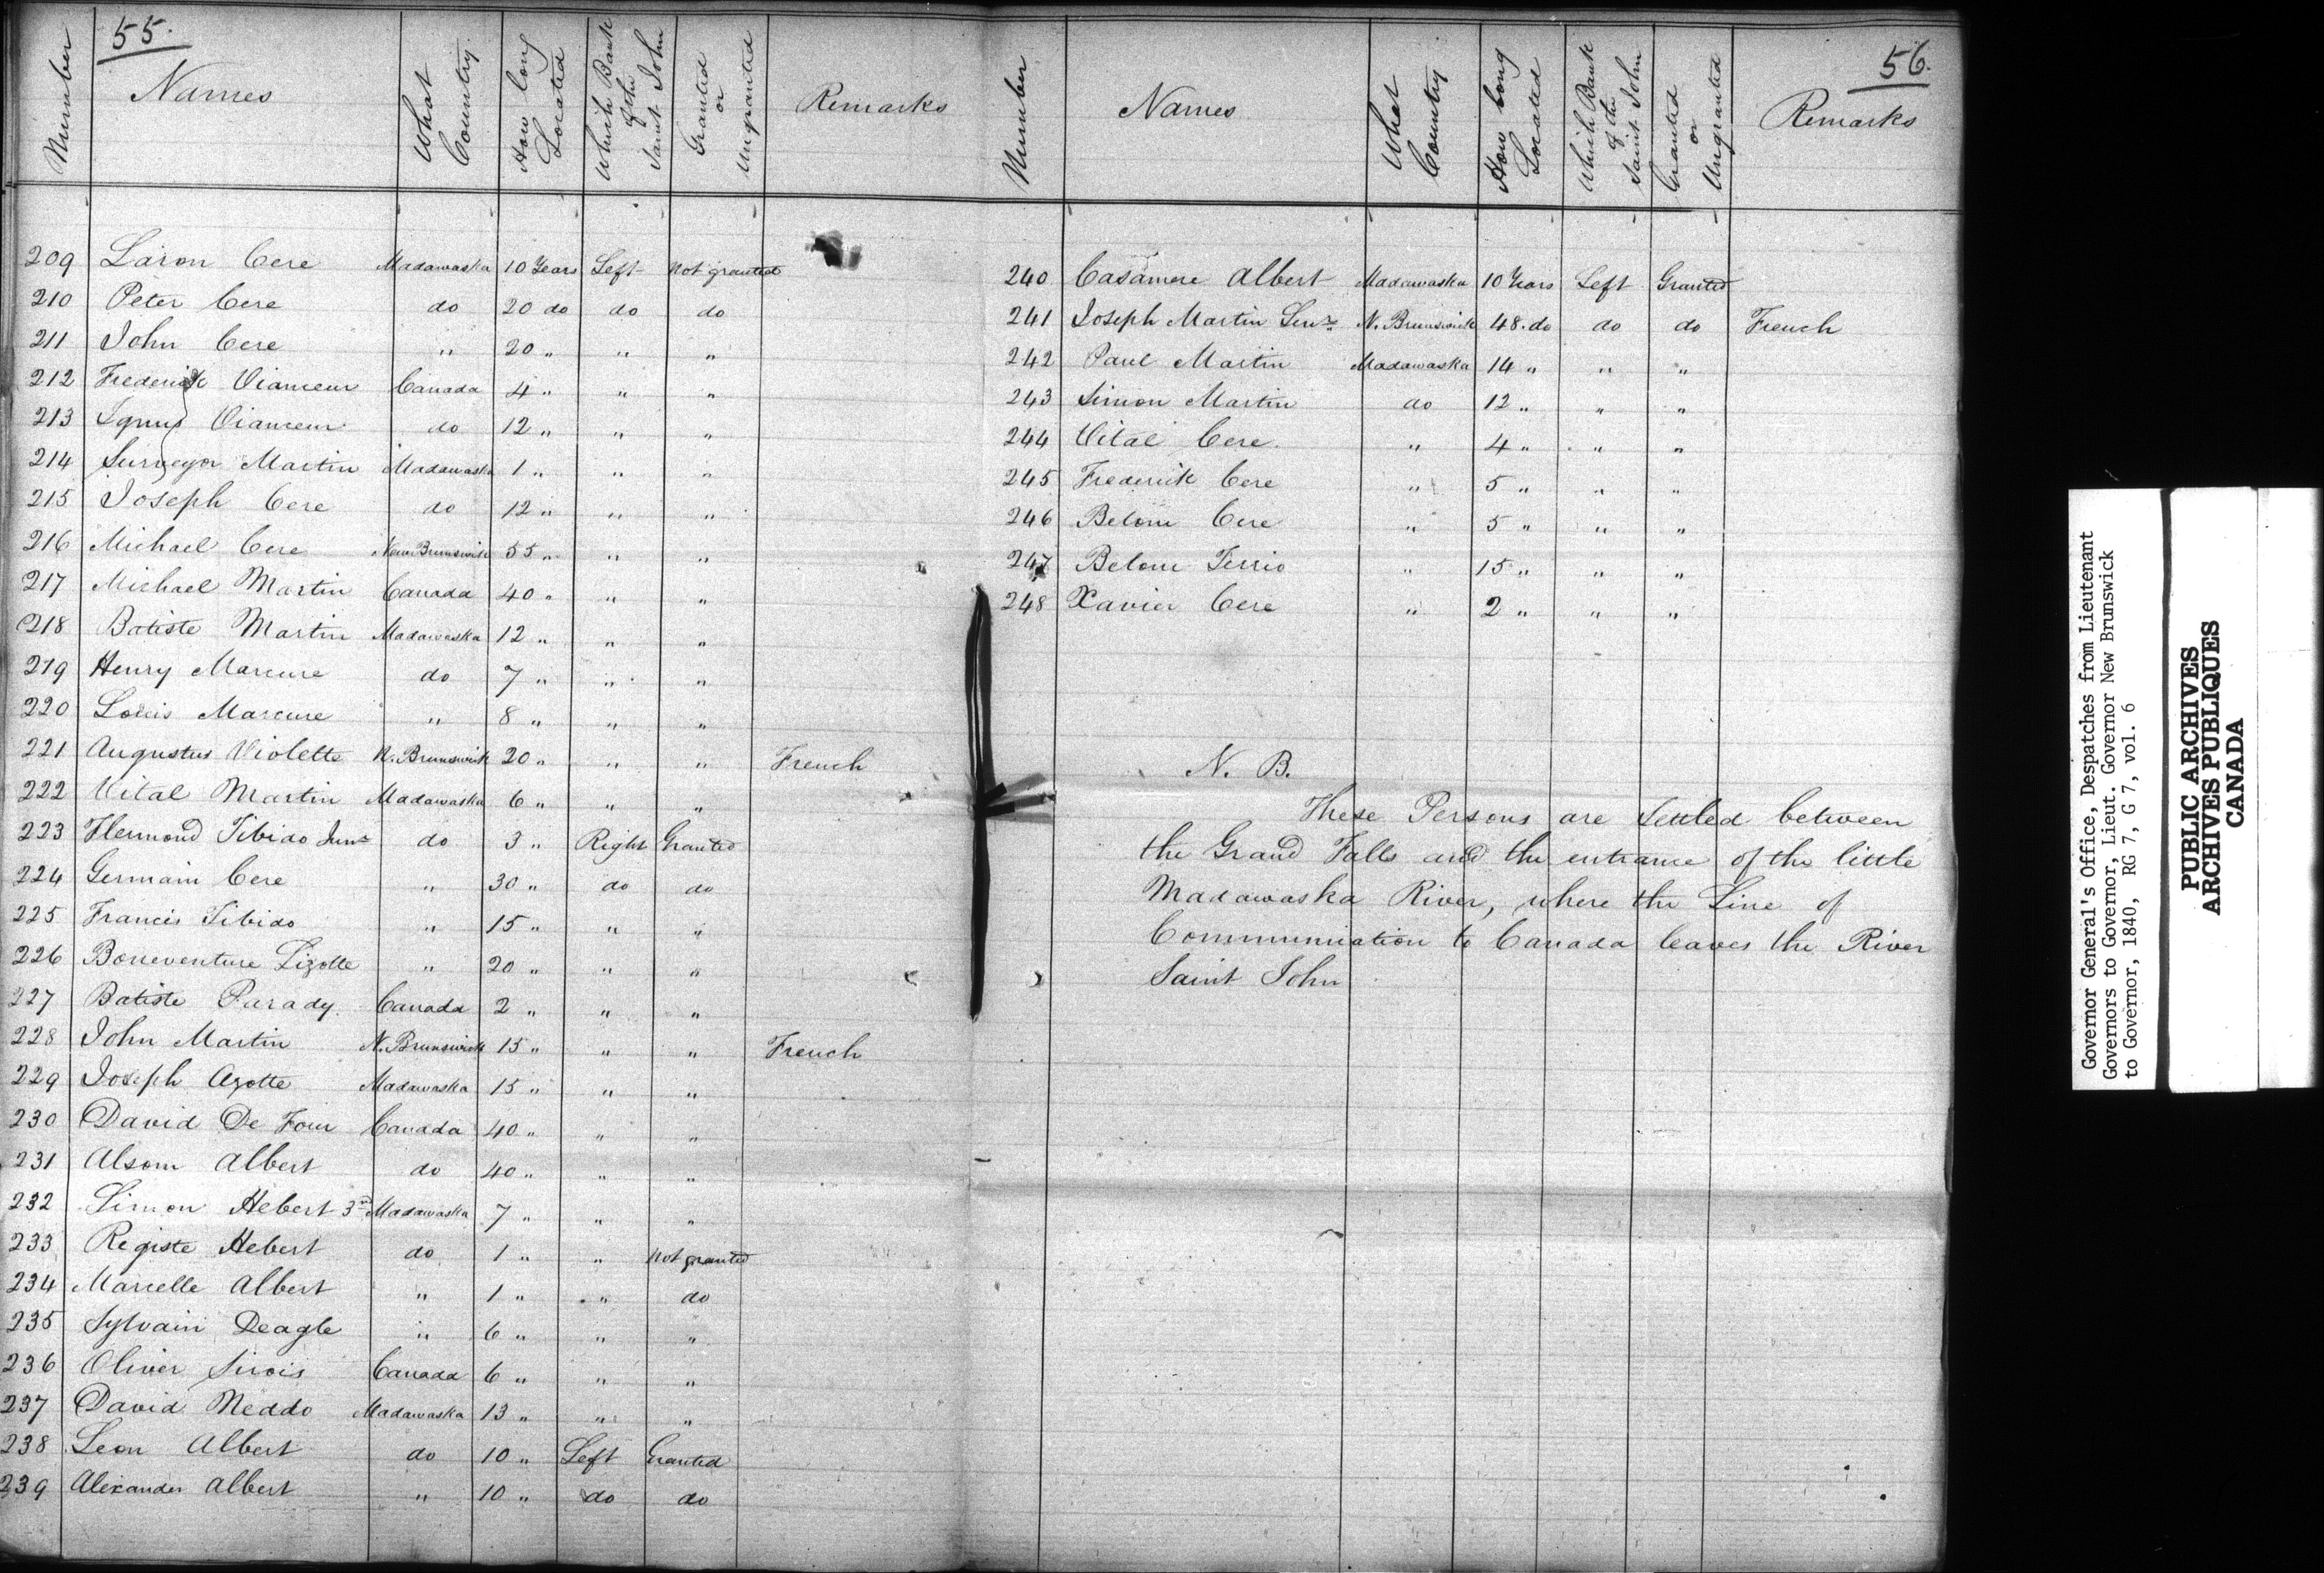 55.
Number | Names | What Country | How long Located | Which Bank of the Saint John | Granted or Ungranted | Remarks
209 Laron Cere Madawaska 10 Years Left Not granted
210 Peter Cere do 20 do do do
211 John Cere " 20 " " "
212 Frederick Vianceur Canada 4 " " "
213 Ignus Vianceur do 12 " " "
214 Surveyor Martin Madawaska 1 " " "
215 Joseph Cere do 12 " " "
216 Michael Cere New Brunswick 55 " " "
217 Michael Martin Canada 40 " " "
218 Batiste Martin Madawaska 12 " " "
219 Henry Marcure do 7 " " "
220 Louis Marcure " 8 " " "
221 Augustus Violette N. Brunswick 20 " " " French
222 Vital Martin Madawaska 6 " " "
223 Hermond Tibido Junr do 3 " Right Granted
224 Germain Cere " 30 " do do
225 Francis Tibido " 15 " " "
226 Boneventure Lizotte " 20 " " "
227 Batiste Parady Canada 2 " " "
228 John Martin N. Brunswick 15 " " " French
229 Joseph Azotte Madawaska 15 " " "
230 David De Four Canada 40 " " "
231 Alsom Albert do 40 " " "
232 Simon Hebert 3rd Madawaska 7 " " "
233 Registe Hebert do 1 " " Not granted
234 Marcelle Albert " 1 " " do
235 Sylvain Deagle " 6 " " "
236 Oliver Sirois Canada 6 " " "
237 David Neddo Madawaska 13 " " "
238 Leon Albert do 10 " Left Granted
239 Alexander Albert " 10 " do do
56.
Number | Names | What Country | How long Located | Which Bank of the Saint John | Granted or Ungranted | Remarks
240 Casamere Albert Madawaska 10 Years Left Granted
241 Joseph Martin Senr N. Brunswick 48 do do do French
242 Paul Martin Madawaska 14 " " "
243 Simon Martin do 12 " " "
244 Vital Cere " 4 " " "
245 Frederick Cere " 5 " " "
246 Belone Cere " 5 " " "
247 Belone Terrio " 15 " " "
248 Xavier Cere " 2 " " "
N. B.
These Persons are Settled between
the Grand Falls and the entrance of the little
Madawaska River, where the Line of
Communication to Canada leaves the River
Saint John
Governor General's Office, Despatches from Lieutenant
Governors to Governor, Lieut. Governor New Brunswick
to Governor, 1840, RG 7, G 7, vol. 6
PUBLIC ARCHIVES
ARCHIVES PUBLIQUES
CANADA